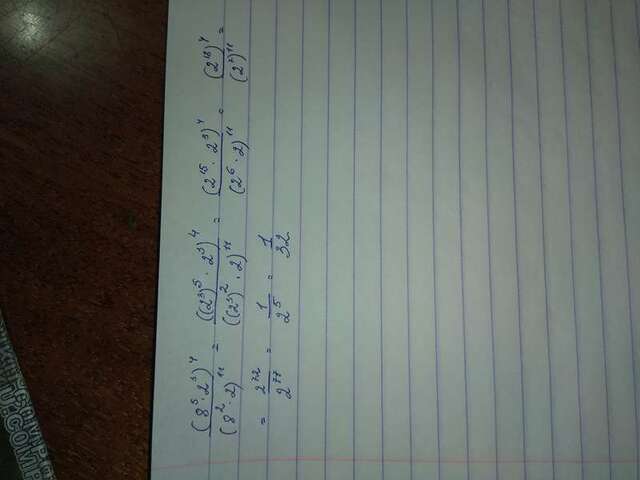 (8⁵·2³)⁴/(8²·2)¹¹ = ((2³)⁵·2³)⁴/((2³)²·2)¹¹ = (2¹⁵·2³)⁴/(2⁶·2)¹¹ = (2¹⁸)⁴/(2⁷)¹¹ =
= 2⁷²/2⁷⁷ = 1/2⁵ = 1/32